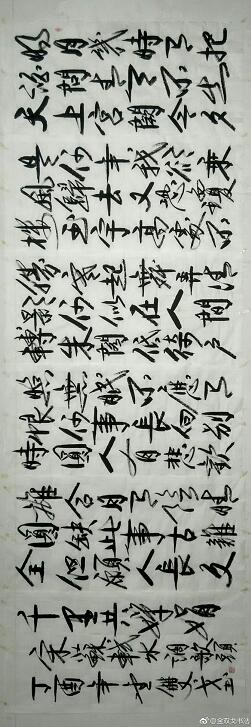 明月幾時有把
酒問青天不知
天上宮闕今夕
是何年我欲乘
風歸去又恐瓊
樓玉宇高處不
勝寒起舞弄清
影何似在人間
轉朱閣低綺戶
照無眠不應有
恨何事長向別
時圓人有悲歡
離合月有陰晴
圓缺此事古難
全但願人長久
千里共嬋娟
宋蘇軾水調歌頭
丁酉年